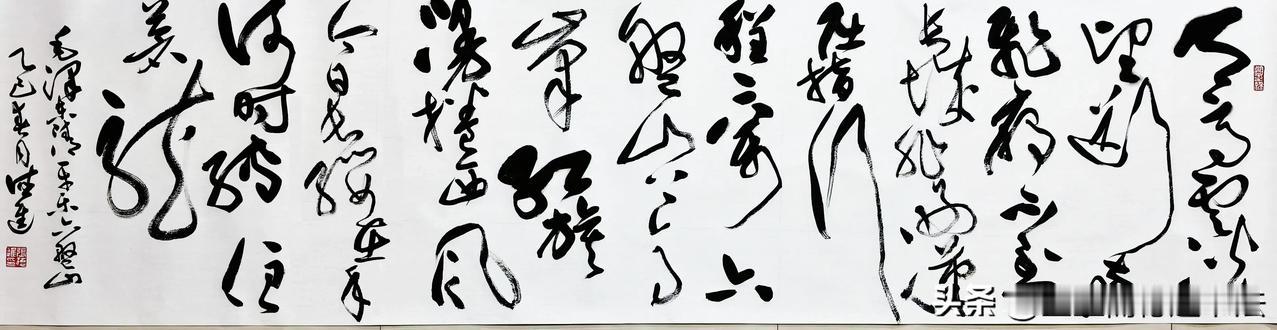 天高雲淡
望断南
飛雁不到
长城非好汉
屈指行
程二万六
盤山上高
峯红旗
漫捲西风
今日长缨在手
何时缚住
苍龍
毛澤东清平乐六盤山
乙巳春月
头条